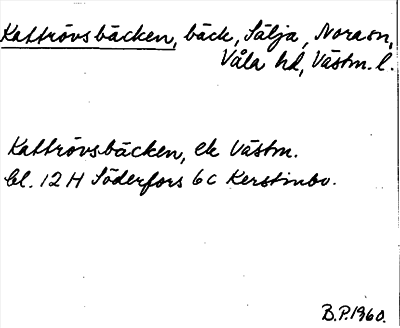 Kattrövsbäcken, bäck, Sälja, Nora sn,
Våla hd, Västm. l.
Kattrövsbäcken, ek Västm.
bl. 12 H Söderfors 6 c Kerstinbo.
B.P. 1960.